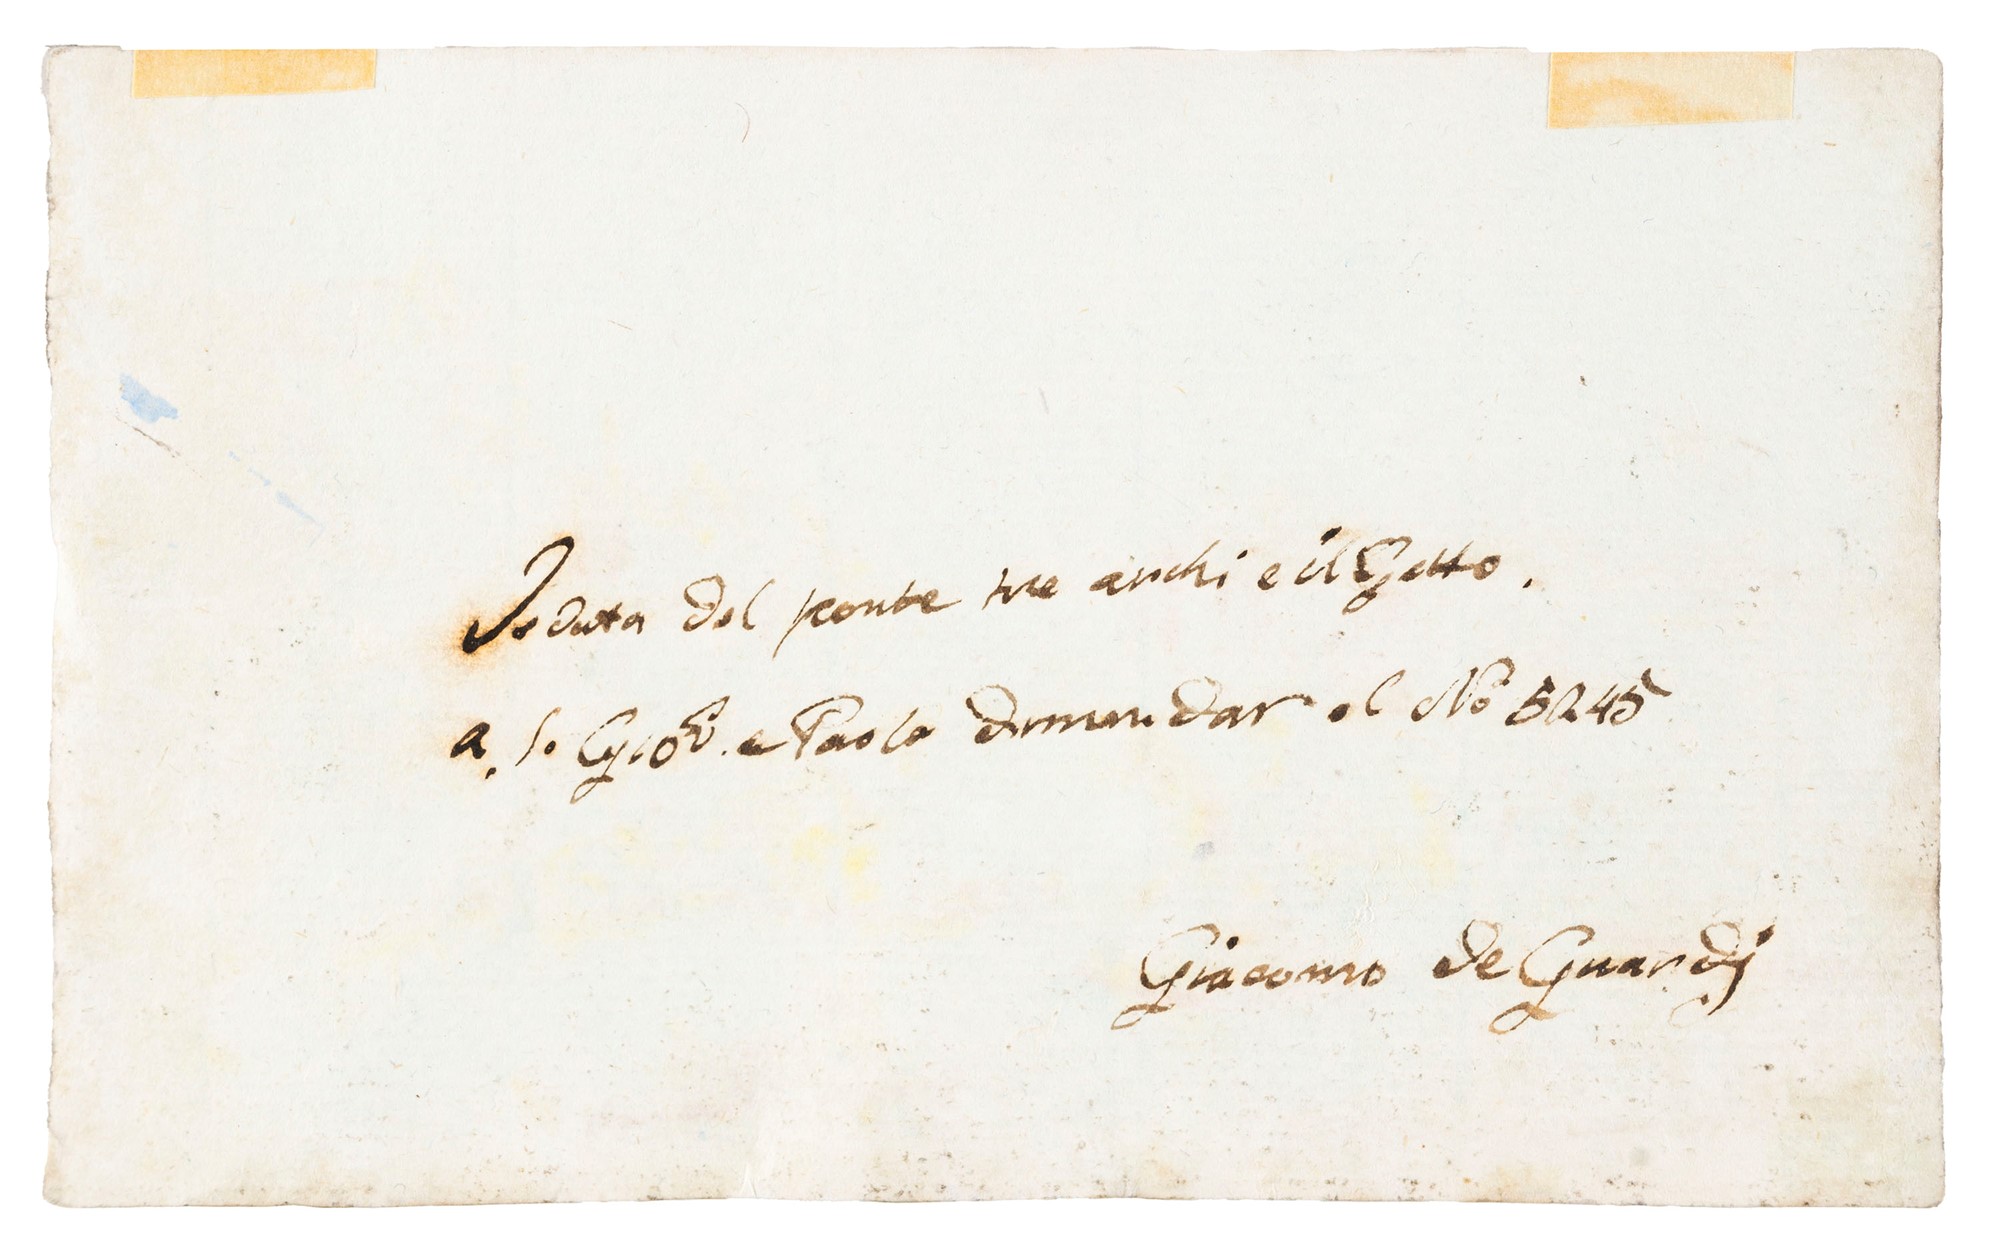 Veduta del ponte tre archi e il Getto.
a. S.o Gio: e Paolo dimandar al No 5245
Giacomo de Guardi